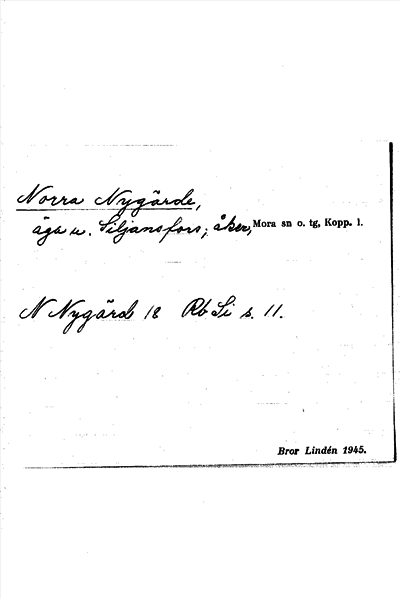 Norra Nygärde,
äga u. Siljansfors, åker, Mora sn o. tg, Kopp. l.
N Nygärde 18 Rb Si s. 11.
Bror Lindén 1945.